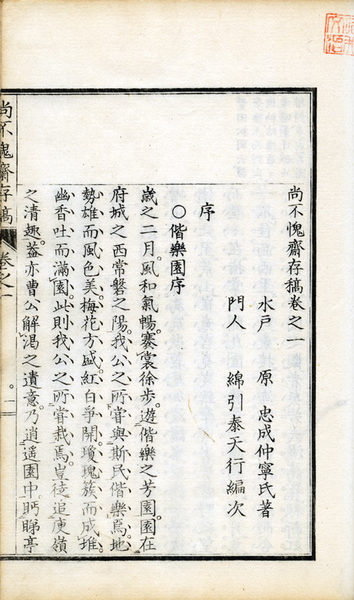 尚不愧齋存稿卷之一
水戶 原 忠成仲寧氏著
門人 綿引泰天行編次
序
○偕樂園序
歲之二月。風和氣暢。褰裳徐步。遊偕樂之芳園。園在
府城之西常磐之陽。我公之所嘗與斯民偕樂焉。地
勢雄而風色美。梅花方盛。紅白爭開。瓊瑰簇而成堆。
幽香吐而滿園。此則我公之所嘗栽焉。豈徒追庾嶺
之清趣。蓋亦曹公解渴之遺意。乃逍遥園中。眄睇亭
尚不愧齋存稿 卷之一 一